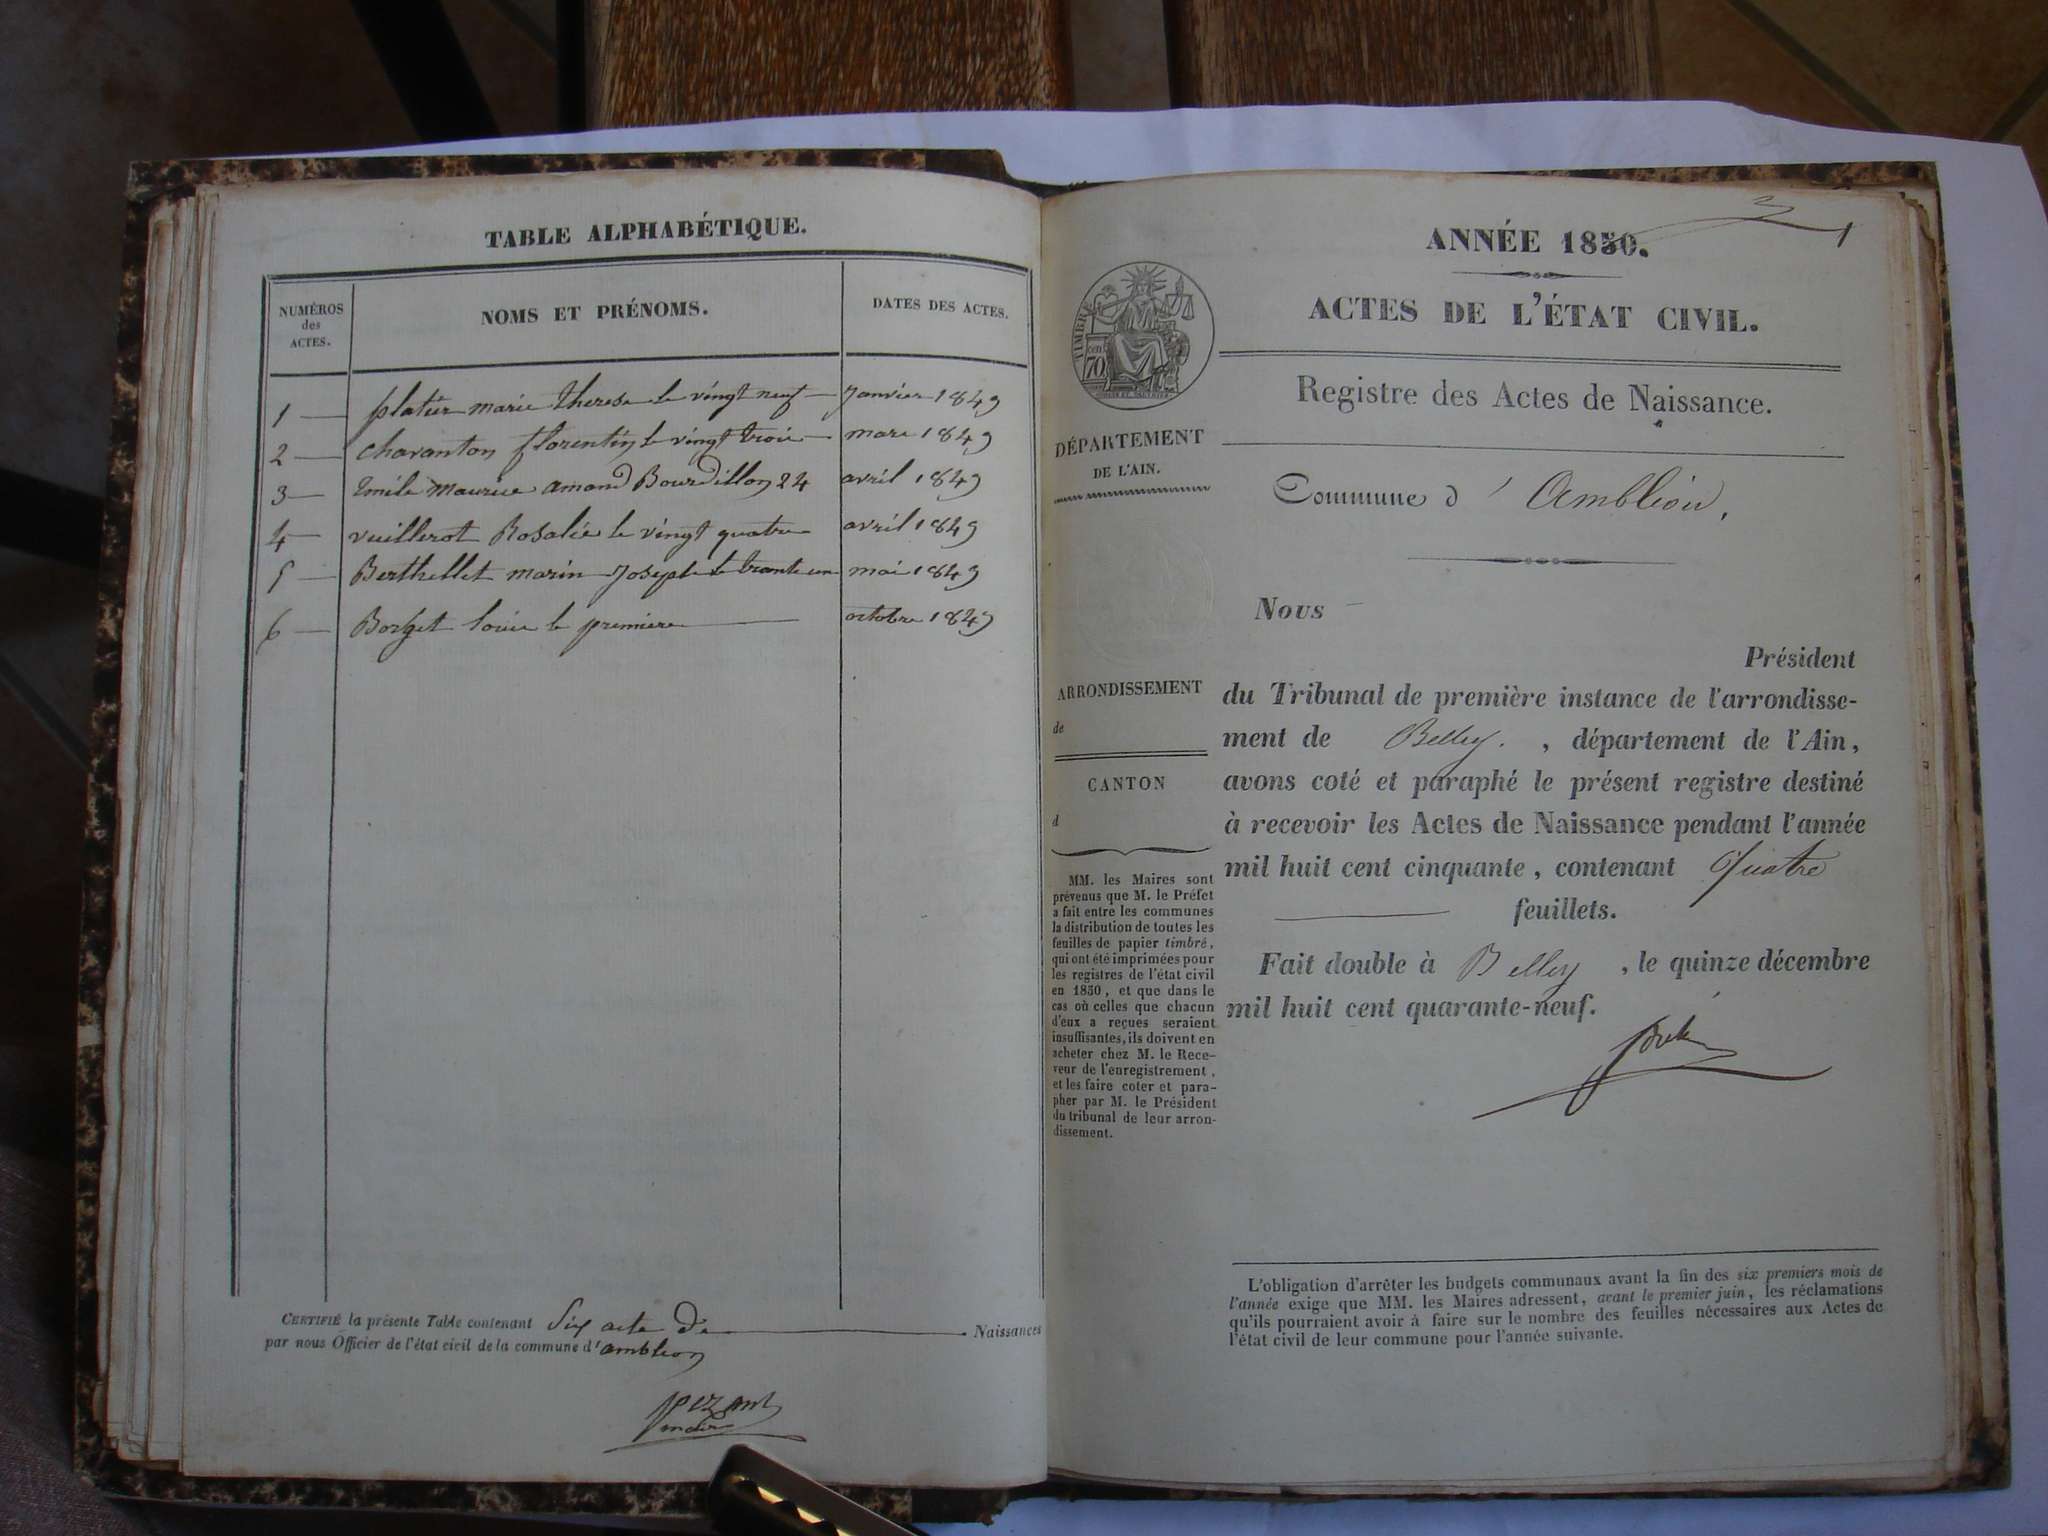 TABLE ALPHABÉTIQUE.
NUMÉROS des ACTES.
NOMS ET PRÉNOMS.
DATES DES ACTES.
1 — platier marie therese le vingt neuf — Janvier 1849
2 — chavanton florentin le vingt trois — mars 1849
3 — Emile Maurice amand Bourdillon 24 avril 1849
4 — vuillerot Rosalie le vingt quatre avril 1849
5 — Berthellet marin Joseph le trente un mai 1849
6 — Borget louise le premiere — octobre 1849
CERTIFIÉ la présente Table contenant Six acte de — Naissances
par nous Officier de l'état civil de la commune d'ambleon
1
ANNÉE 1850.
ACTES DE L'ÉTAT CIVIL.
TIMBRE
70
Registre des Actes de Naissance.
DÉPARTEMENT
DE L'AIN.
Commune d'Ambléon,
Nous
Président
du Tribunal de première instance de l'arrondisse-
ment de Belley. , département de l'Ain,
avons coté et paraphé le présent registre destiné
à recevoir les Actes de Naissance pendant l'année
mil huit cent cinquante, contenant Quatre
feuillets.
Fait double à Belley , le quinze décembre
mil huit cent quarante-neuf.
ARRONDISSEMENT
de
CANTON
d
MM. les Maires sont
prévenus que M. le Préfet
a fait entre les communes
la distribution de toutes les
feuilles de papier timbré,
qui ont été imprimées pour
les registres de l'état civil
en 1850, et que dans le
cas où celles que chacun
d'eux a reçues seraient
insuffisantes, ils doivent en
acheter chez M. le Rece-
veur de l'enregistrement,
et les faire coter et para-
pher par M. le Président
du tribunal de leur arron-
dissement.
L'obligation d'arrêter les budgets communaux avant la fin des six premiers mois de
l'année exige que MM. les Maires adressent, avant le premier juin, les réclamations
qu'ils pourraient avoir à faire sur le nombre des feuilles nécessaires aux Actes de
l'état civil de leur commune pour l'année suivante.